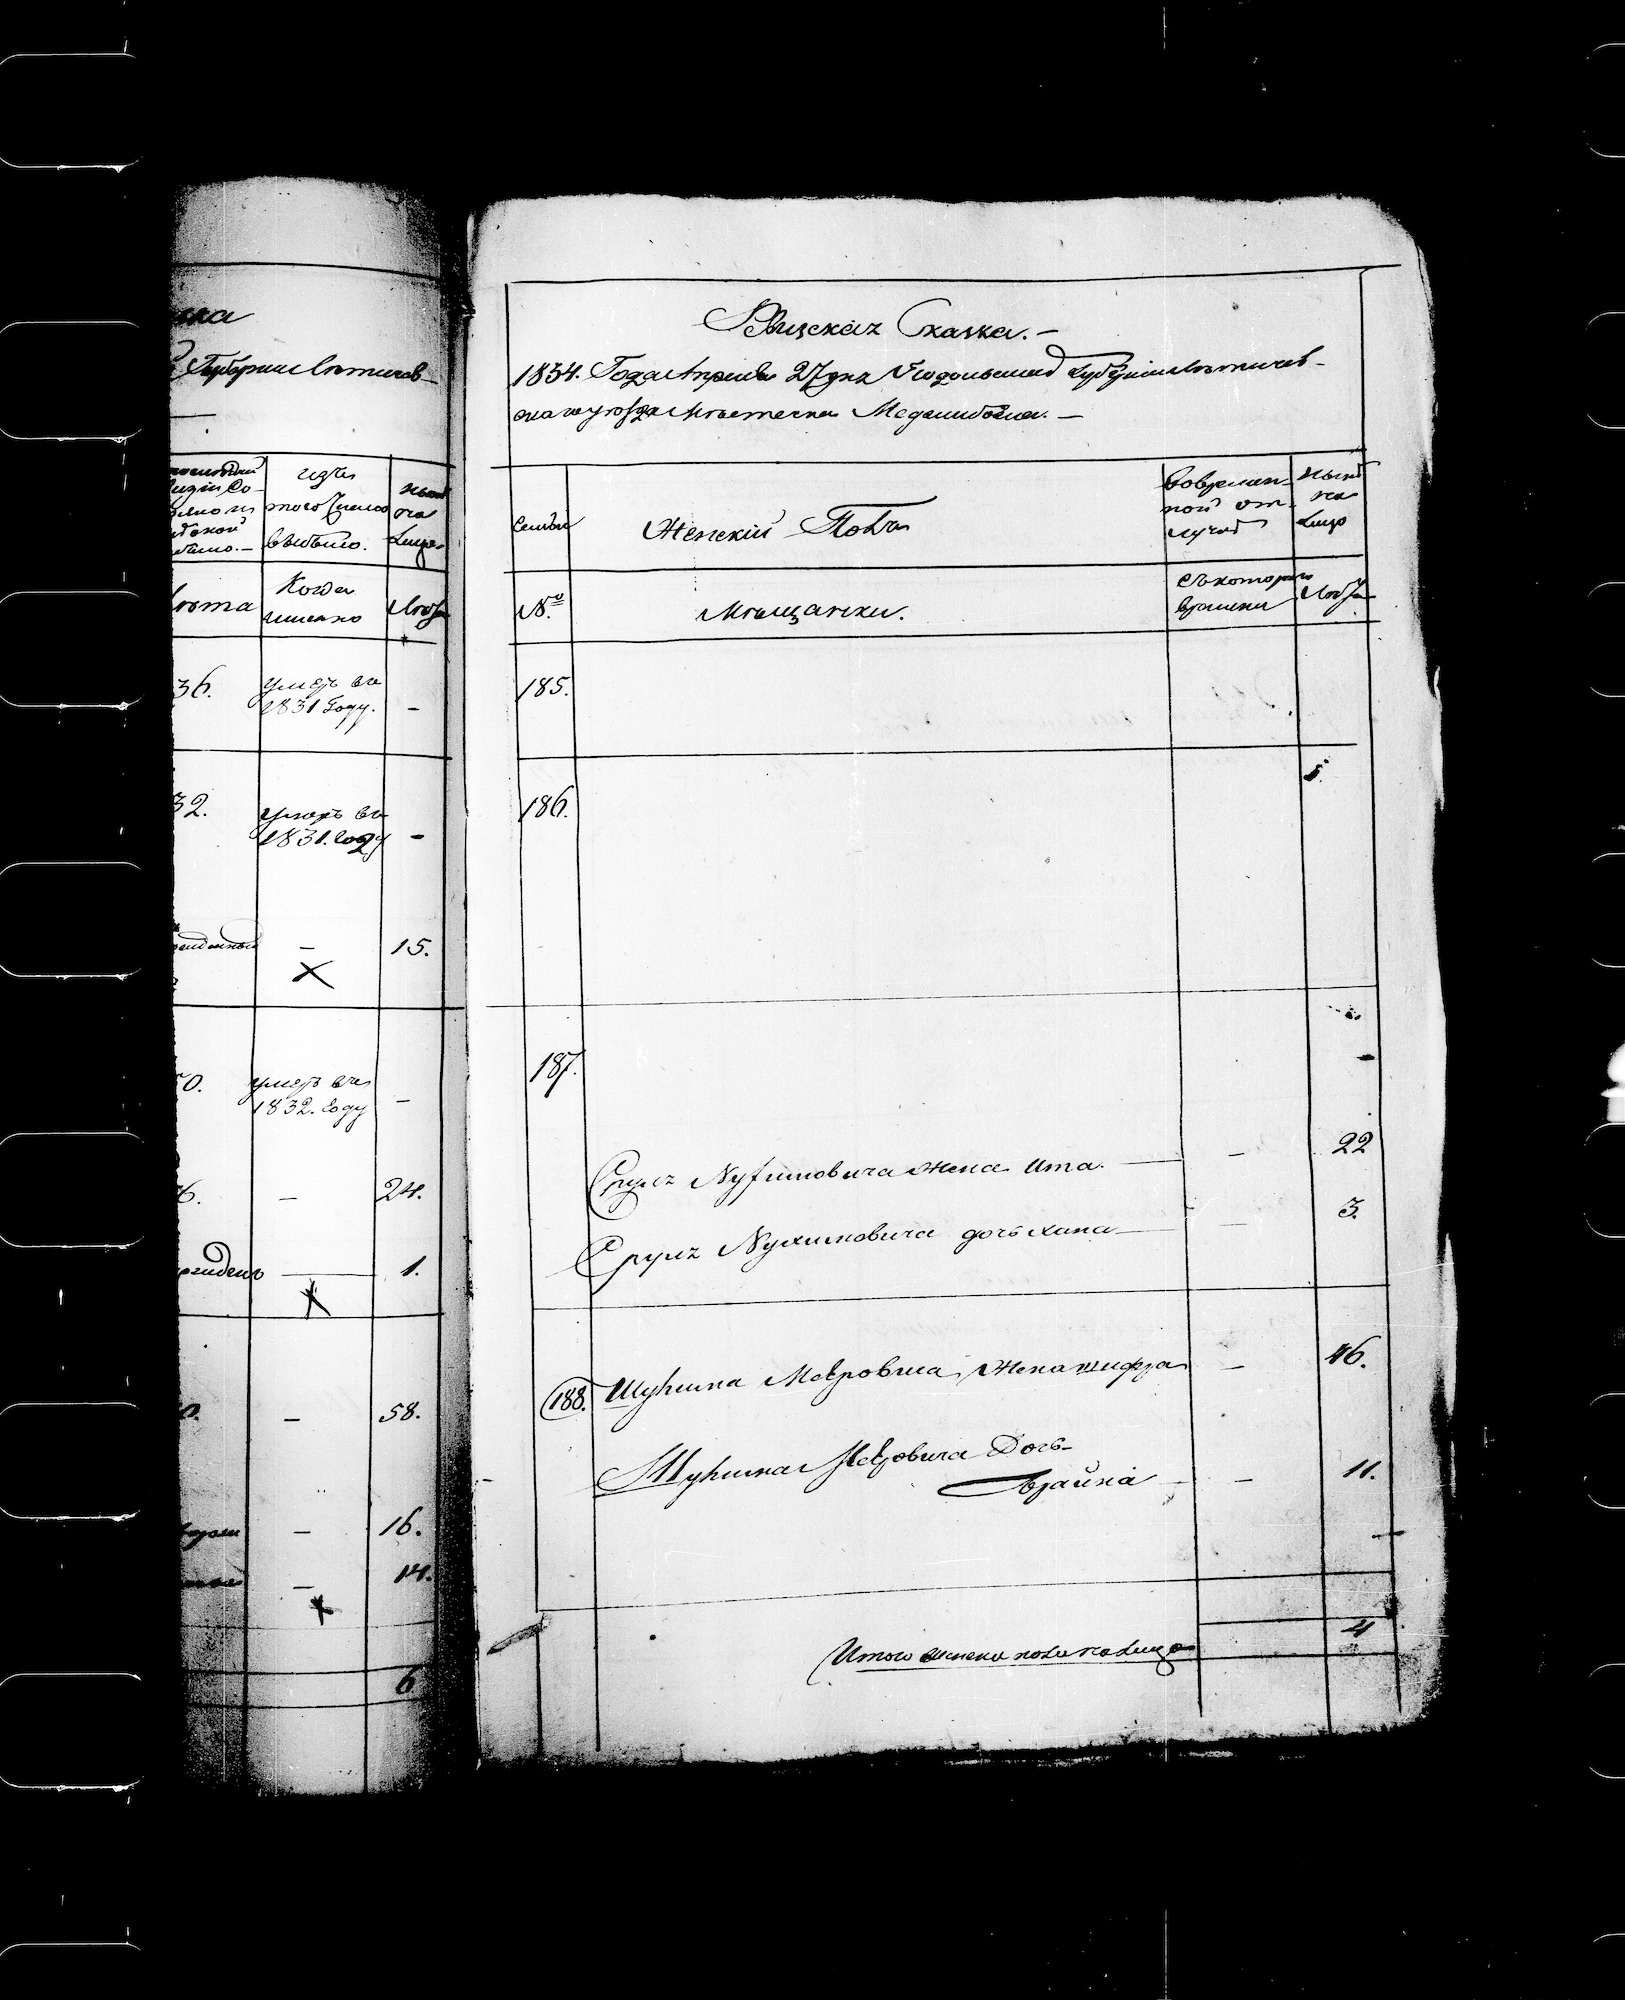 ска
Губернии Летичев-
изъ
того числа
выбыло.
ныне
на
лицо
Когда
именно
Лета
Лета
36.
умеръ въ
1831 Году.
-
32.
умеръ въ
1831. году
-
-
15.
умеръ въ
1832. Году
-
6.
-
24.
1.
-
58.
-
16.
-
14.
6
Ревизская Сказка. -
1834. Года Апреля 27 дня Подольской Губернии Летичев-
скаго уезда Местечка Меджибожа. -
Семьи
Женский Полъ
Во времен-
ной от-
лучке
Ныне
на
лицо
№
Мещанки.
Съ котораго
времени
Лета
185.
186.
187.
Сруля Нухимовича жена Ита. - 22
Сруля Нухимовича дочь Хана - 3.
188. Шулима Мееровича Жена Шифра - 46.
Шулима Мееровича Дочь
Брайна - 11.
Итого женска пола на лицо 4